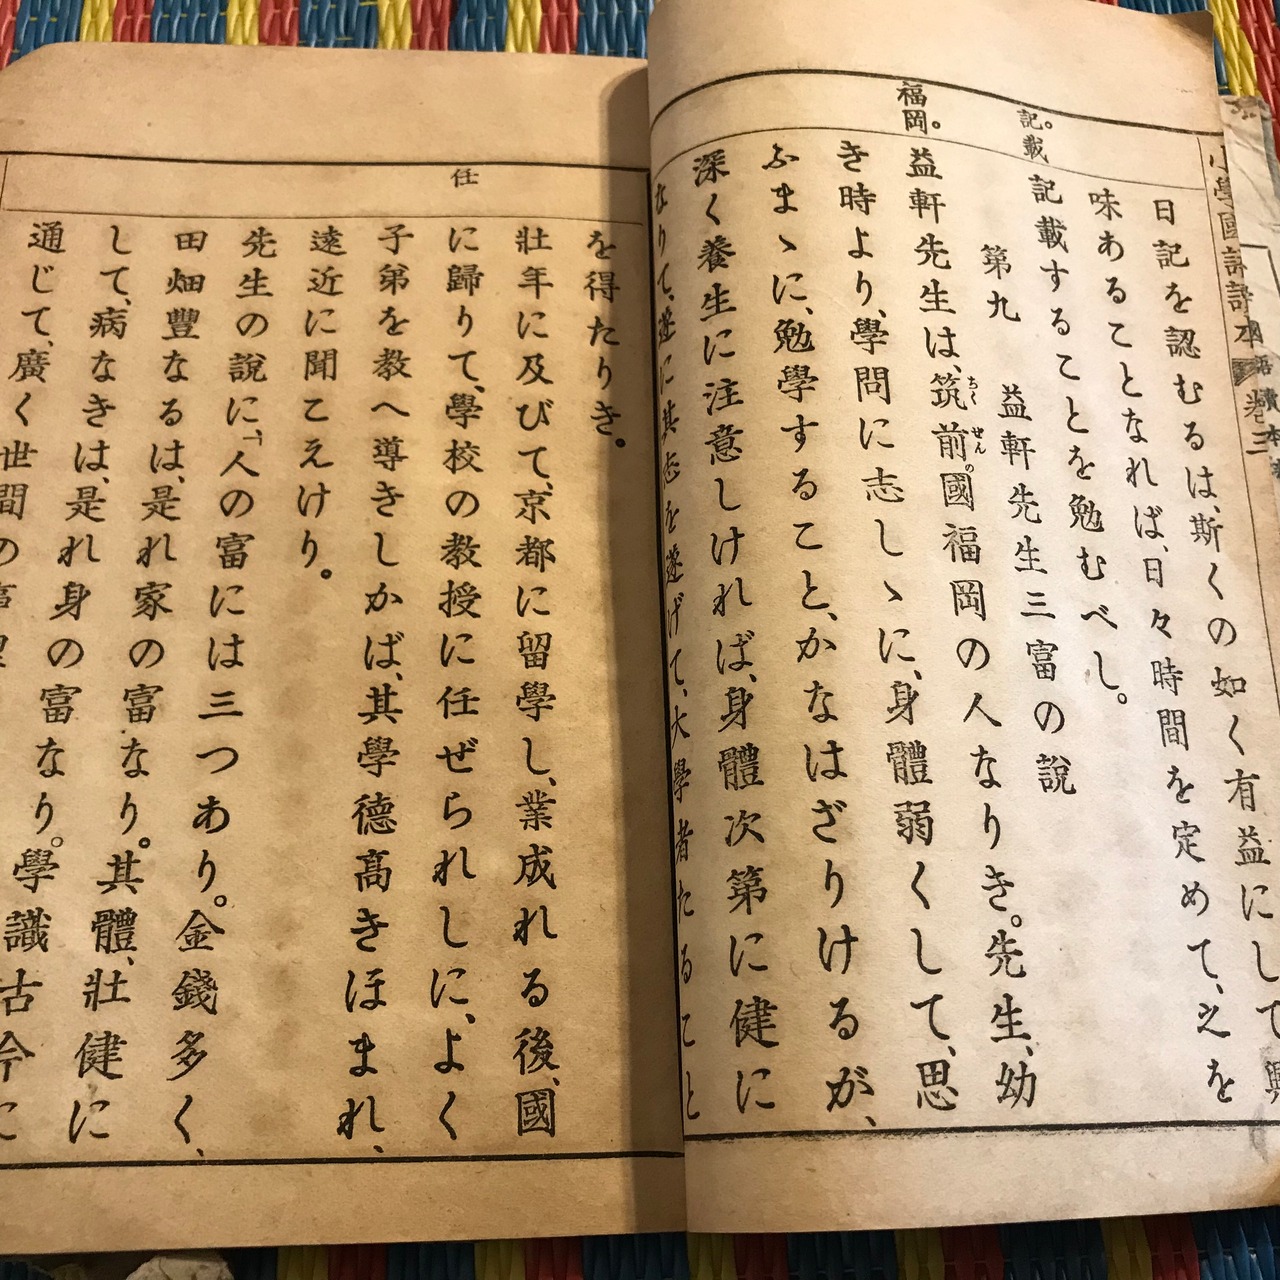 日記を認むるは、斯くの如く有益にして興
味あることなれば、日々時間を定めて、之を
記載することを勉むべし。
記載
第九 益軒先生三富の說
益軒先生は、筑前國福岡の人なりき。先生、幼
ちくぜん
福岡
き時より、學問に志しゝに、身體弱くして、思
ふまゝに、勉學すること、かなはざりけるが、
深く養生に注意しければ、身體次第に健に
なりて、遂に其志を遂げて、大學者たること
を得たりき。
壯年に及びて、京都に留學し、業成れる後、國
に歸りて、學校の教授に任ぜられしに、よく
任
子弟を教へ導きしかば、其學德高きほまれ、
遠近に聞こえけり。
先生の說に、「人の富には三つあり。金錢多く、
田畑豐なるは、是れ家の富なり。其體、壯健に
して、病なきは、是れ身の富なり。學識古今に
通じて、廣く世間の